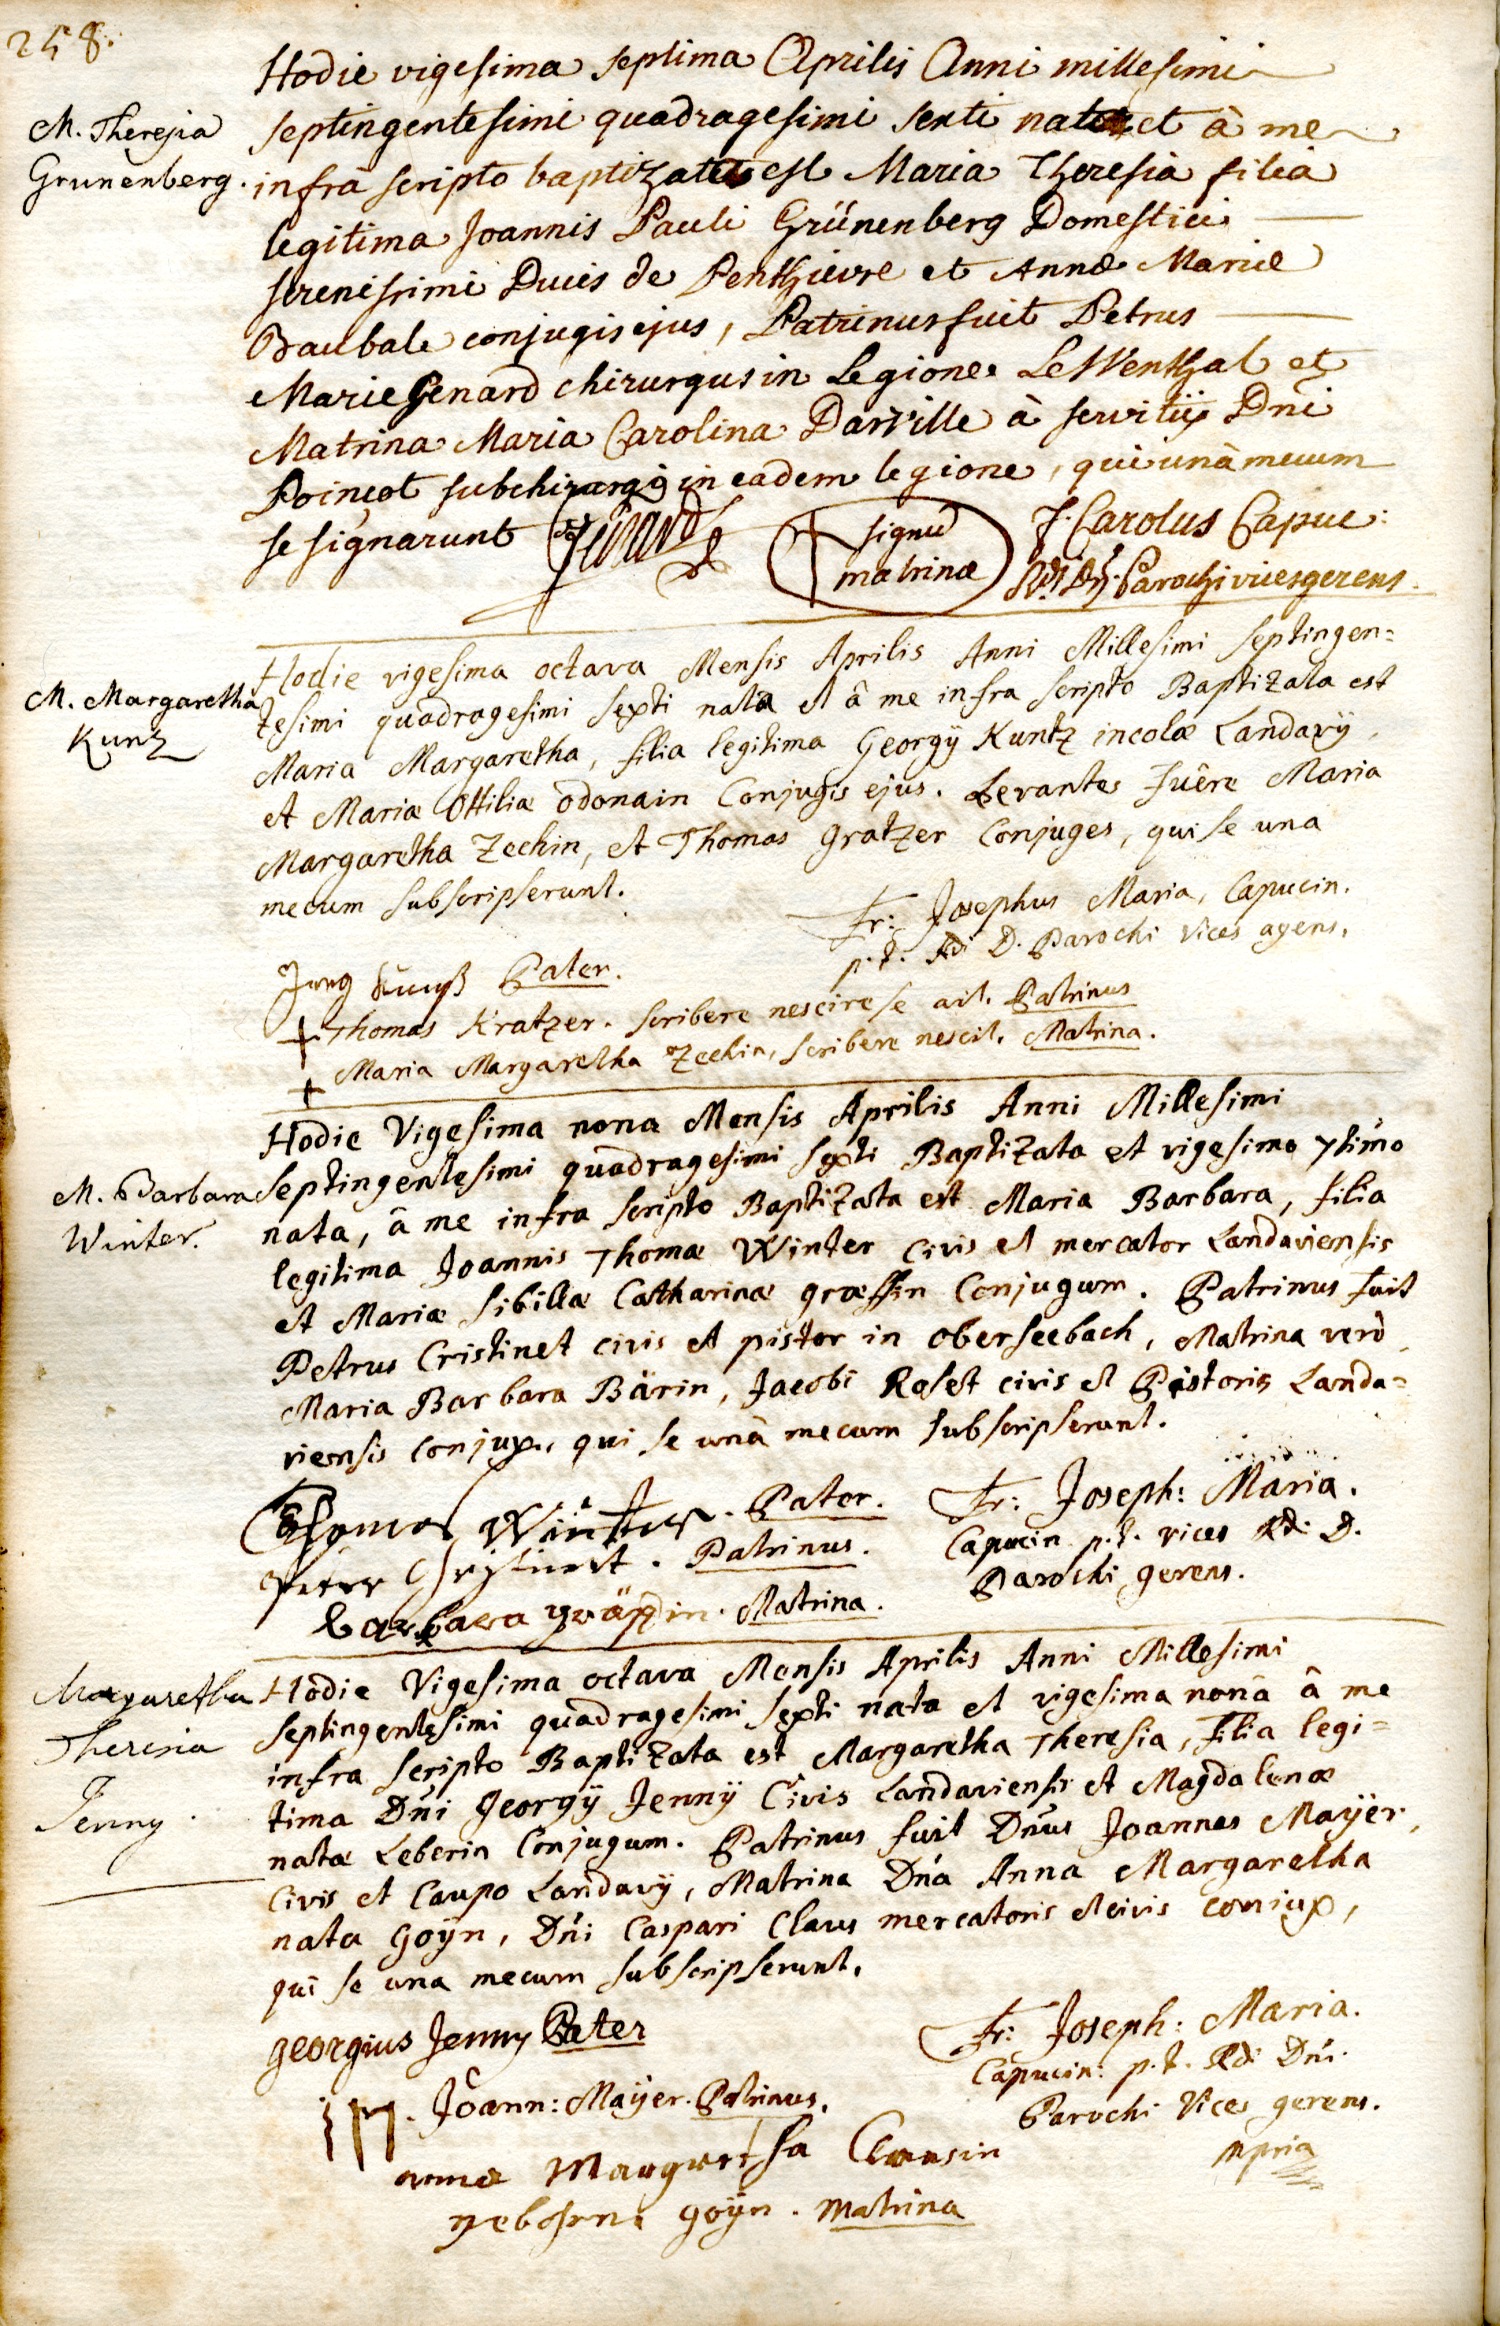 258.
M. Theresia
Grunenberg.
Hodie vigesima septima Aprilis Anni millesimi
septingentesimi quadragesimi sexti nata et à me
infrà scripto baptizata est Maria Theresia filia
legitima Joannis Pauli Grünenberg Domestici
serenissimi Ducis de Penthievre et Annæ Mariæ
Baubale conjugis ejus, Patrinus fuit Petrus
Marie Genard chirurgus in Legione LeWenthal et
Matrina Maria Carolina Darville à servitijs Dni
Poincot subchirurgi in eadem legione, qui unà mecum
se signarunt Genard
signu
matrinæ
f. Carolus Capuc:
Rdi Dni Parochi vicesgerens
M. Margaretha
Kunz
Hodie vigesima octava Mensis Aprilis Anni Millesimi septingen=
tesimi quadragesimi sexti nata et â me infra scripto Baptizata est
Maria Margaretha, filia legitima Georgÿ Kuntz incolæ Landavÿ,
et Mariæ Ottiliæ odonain Conjugis ejus. Levantes fuêre Maria
Margaretha Zechin, et Thomas Gratzer Conjuges, qui se una
mecum subscripserunt.
Fr: Josephus Maria, Capucin.
p.t. Rdi D. Parochi vices agens.
Jorg Kuntz Pater.
+ Thomas Kratzer. scribere nescire se ait. Patrinus
+ Maria Margaretha Zechin, scribere nescit. Matrina.
M. Barbara
Winter.
Hodie Vigesima nona Mensis Aprilis Anni Millesimi
septingentesimi quadragesimi sexti Baptizata et vigesimo 7timo
nata, â me infra scripto Baptizata est Maria Barbara, filia
legitima Joannis Thomæ Winter civis et mercator Landaviensis
et Mariæ Sibillæ Catharinæ græffin Conjugum. Patrinus fuit
Petrus Cristinet civis et pistor in oberseebach, Matrina verò
Maria Barbara Bärin, Jacobi Roset civis et Pistoris Landa=
viensis conjux, qui se unà mecum subscripserunt.
Thomas Winter. Pater.
Peter Christinet. Patrinus.
barbara gräffin. Matrina.
Fr: Joseph: Maria.
Capucin p.t. vices Rdi D.
Parochi gerens.
Margaretha
Theresia
Jenny
Hodie Vigesima octava Mensis Aprilis Anni Millesimi
septingentesimi quadragesimi sexti nata et vigesima nonâ â me
infra scripto Baptizata est Margaretha Theresia, filia legi=
tima Dni Georgÿ Jennÿ Civis Landaviensis et Magdalenæ
natæ Leberin Conjugum. Patrinus fuit Dnus Joannes Maÿer,
Civis et Caupo Landavÿ, Matrina Dna Anna Margaretha
nata Goÿn, Dni Caspari Claus mercatoris et civis coniux,
qui se una mecum subscripserunt.
georgius Jenny Pater
Joann: Maÿer. Patrinus.
anna Margaretha Clausin
gebohrne goÿn. Matrina
Fr: Joseph: Maria.
Capucin: p.t. Rdi Dni.
Parochi Vices gerens.
mpria